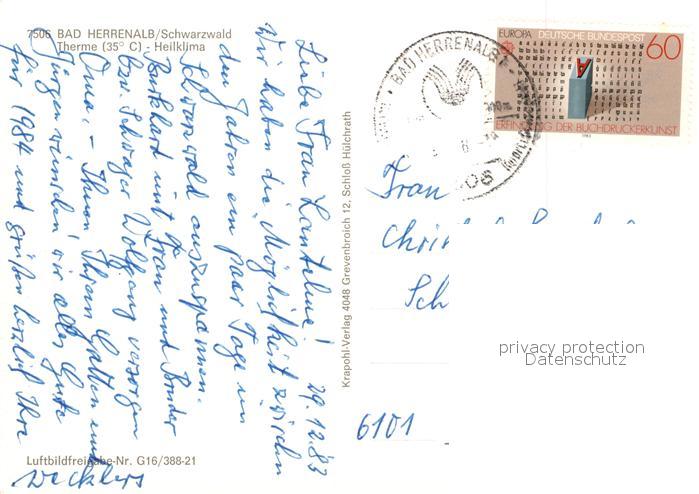 7506 BAD HERRENALB/Schwarzwald
Therme (35° C) - Heilklima
29.12.83
Liebe Frau Lantelme!
Wir haben die Möglichkeit zwischen
den Jahren ein paar Tage im
Schwarzwald auszuspannen.
Burkhard mit Frau und Bruder
bzw. Schwager Wolfgang versorgen
Oma. - Ihnen Ihrem Gatten und
Jürgen wünschen wir alles Gute
für 1984 und grüßen herzlich Ihre
Wecklers
Luftbildfreigabe-Nr. G16/388-21
Krapohl-Verlag 4048 Grevenbroich 12, Schloß Hülchrath
BAD HERRENALB
EUROPA DEUTSCHE BUNDESPOST 60
A
ERFINDUNG DER BUCHDRUCKERKUNST
1983
Frau
Chri
Sch
privacy protection
Datenschutz
6101